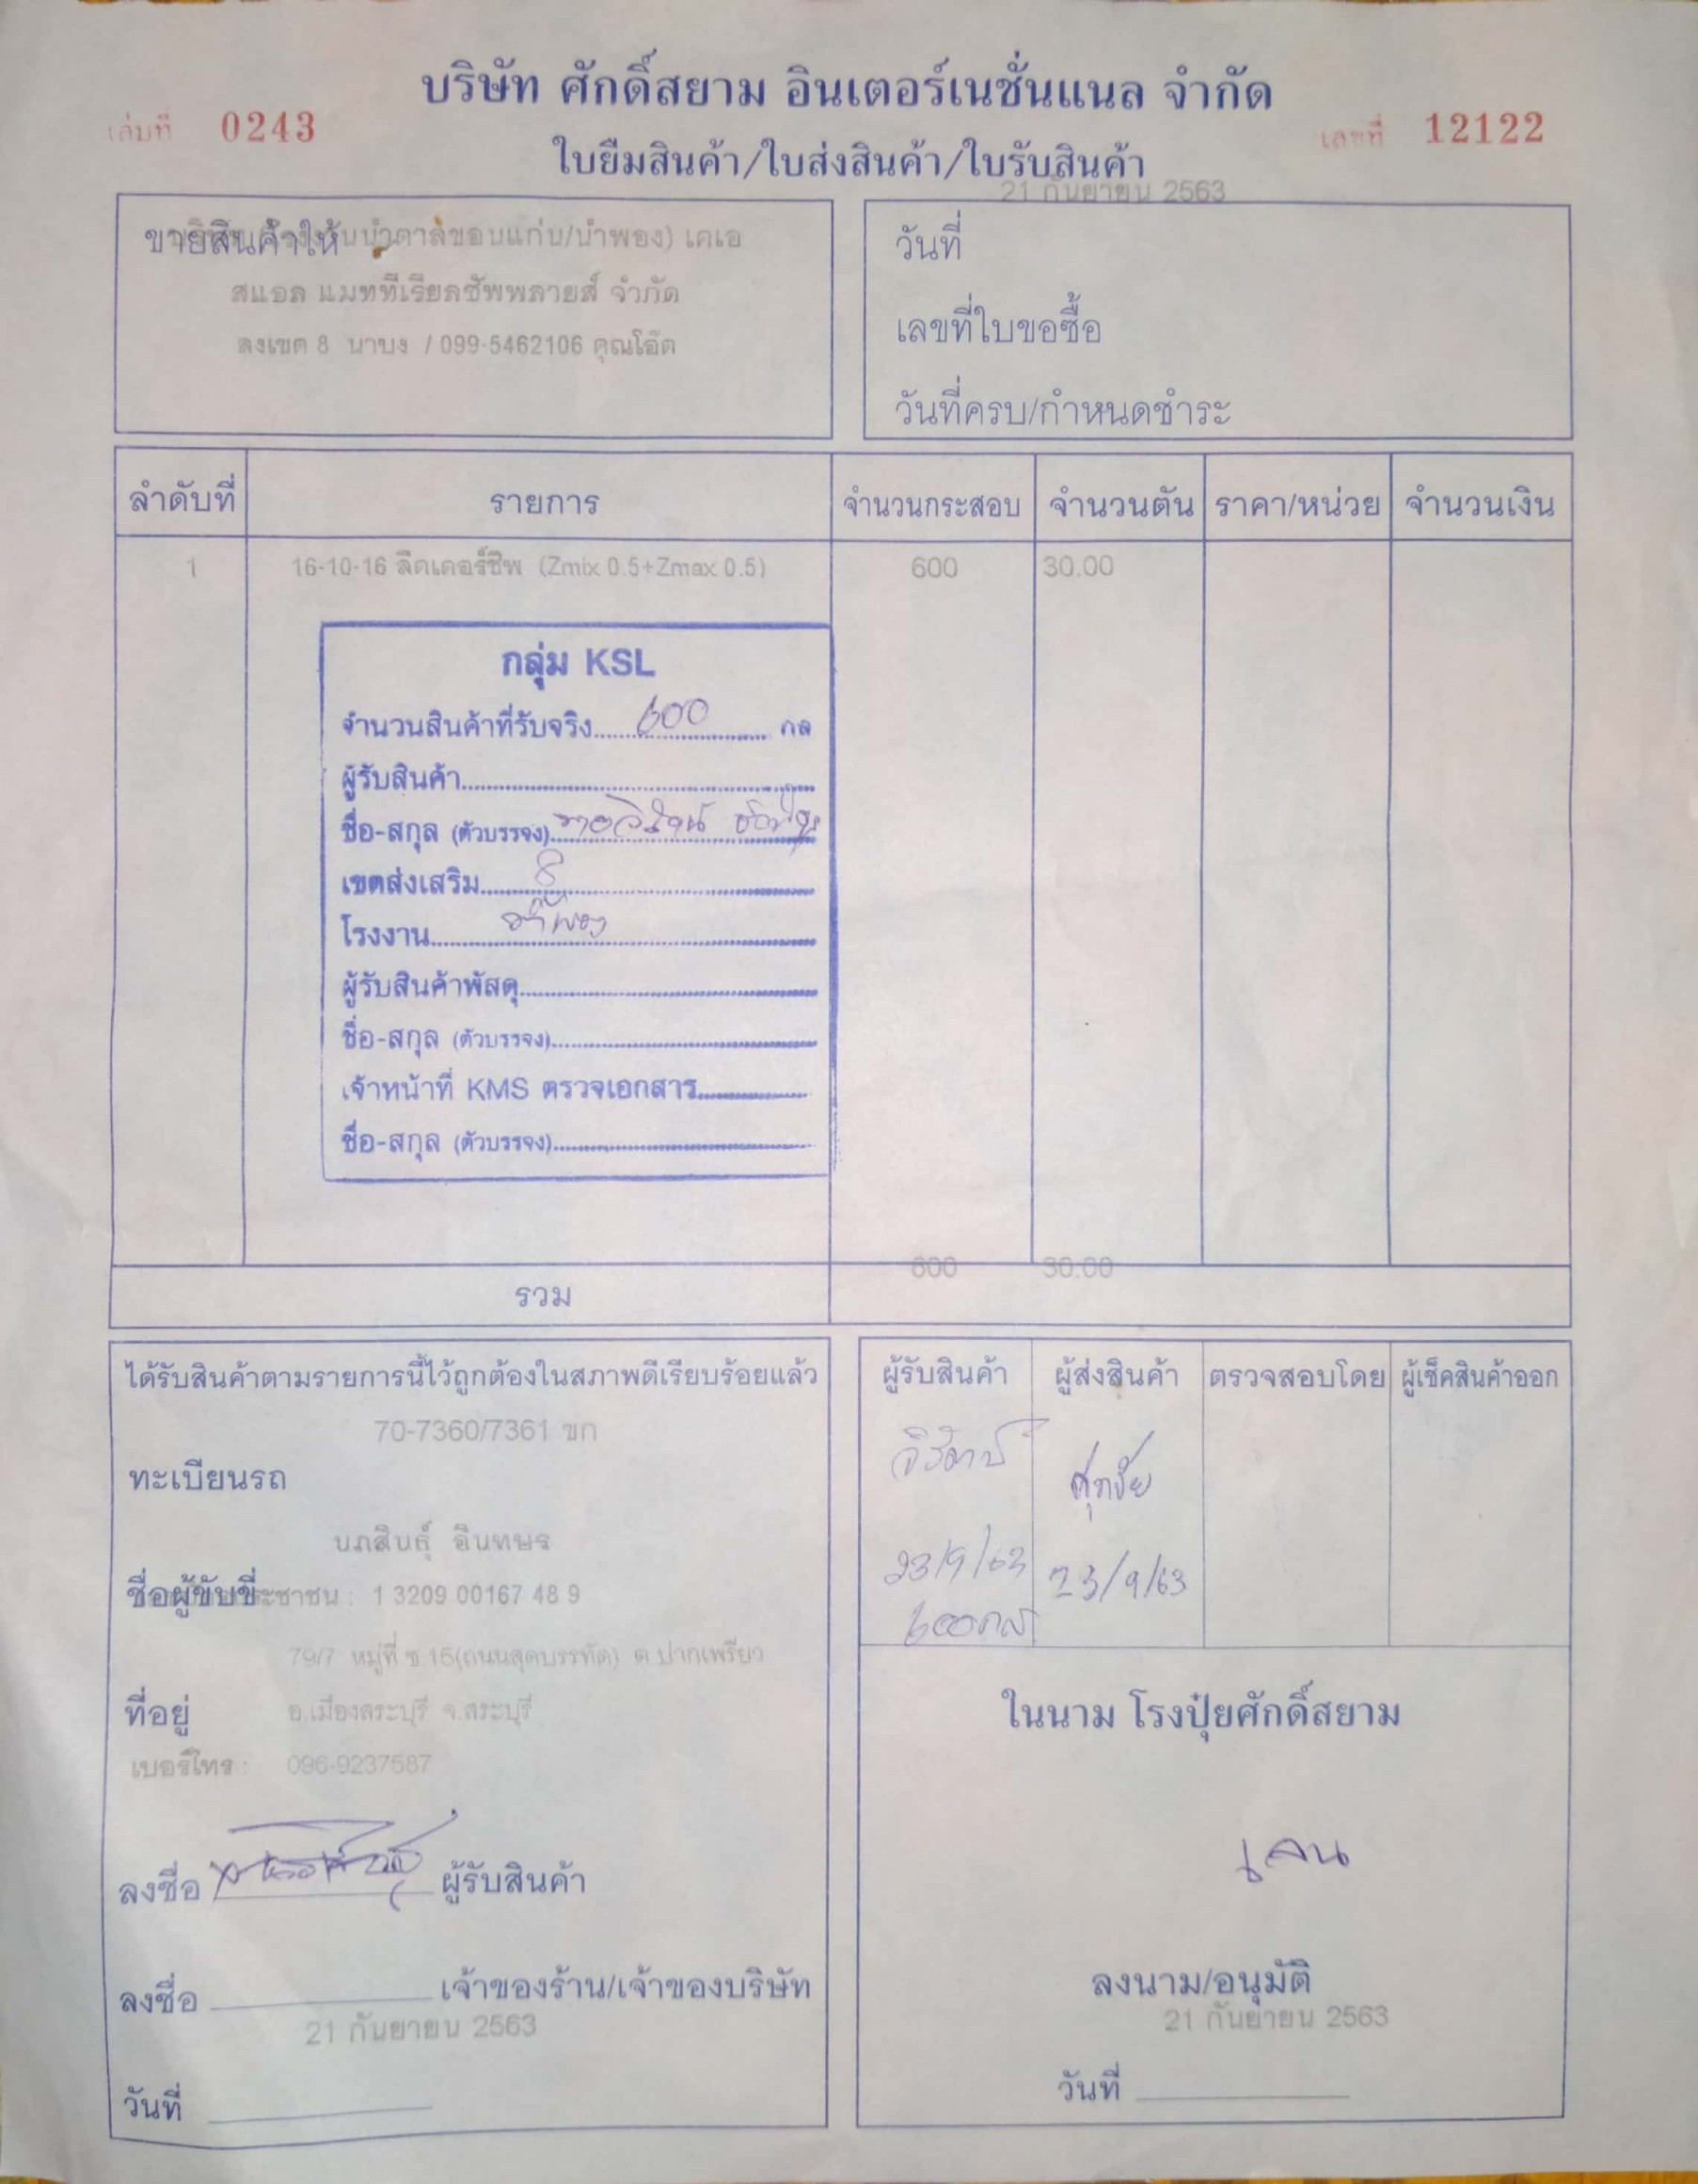 บริษัท ศักดิ์สยาม อินเตอร์เนชั่นแนล จำกัด
เล่มที่ 0243
เลขที่ 12122
ใบยืมสินค้า/ใบส่งสินค้า/ใบรับสินค้า
21 กันยายน 2563
ขายสินค้าให้ น้ำตาลขอนแก่น/น้ำพอง) เคเอ
สแอล แมททีเรียลซัพพลายส์ จำกัด
ลงเขต 8 นาบง / 099-5462106 คุณโอ๊ต
วันที่
เลขที่ใบขอซื้อ
วันที่ครบ/กำหนดชำระ
ลำดับที่ รายการ จำนวนกระสอบ จำนวนตัน ราคา/หน่วย จำนวนเงิน
1 16-10-16 ลีดเดอร์ชิพ (Zmix 0.5+Zmax 0.5) 600 30.00
กลุ่ม KSL
จำนวนสินค้าที่รับจริง 600 กส
ผู้รับสินค้า
ชื่อ-สกุล (ตัวบรรจง)
เขตส่งเสริม 8
โรงงาน น้ำพอง
ผู้รับสินค้าพัสดุ
ชื่อ-สกุล (ตัวบรรจง)
เจ้าหน้าที่ KMS ตรวจเอกสาร
ชื่อ-สกุล (ตัวบรรจง)
600 30.00
รวม
ได้รับสินค้าตามรายการนี้ไว้ถูกต้องในสภาพดีเรียบร้อยแล้ว
70-7360/7361 ขก
ทะเบียนรถ
นภสินธุ์ อินทษร
ชื่อผู้ขับขี่ ประชาชน : 1 3209 00167 48 9
79/7 หมู่ที่ ซ 15(ถนนสุดบรรทัด) ต.ปากเพรียว
ที่อยู่ อ.เมืองสระบุรี จ.สระบุรี
เบอร์โทร : 096-9237587
ลงชื่อ ผู้รับสินค้า
ลงชื่อ เจ้าของร้าน/เจ้าของบริษัท
21 กันยายน 2563
วันที่
ผู้รับสินค้า ผู้ส่งสินค้า ตรวจสอบโดย ผู้เช็คสินค้าออก
ศุภชัย
23/9/63 23/9/63
600 กส
ในนาม โรงปุ๋ยศักดิ์สยาม
ลงนาม/อนุมัติ
21 กันยายน 2563
วันที่